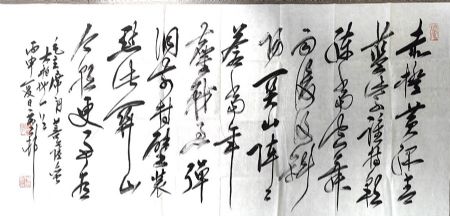 赤橙黄绿青
蓝紫谁持彩
练当空舞
雨后复斜
阳关山阵阵
苍当年
鏖战急弹
洞前村壁装
点此关山
今朝更好看
毛主席词菩萨蛮
大柏地一首
丙申夏日